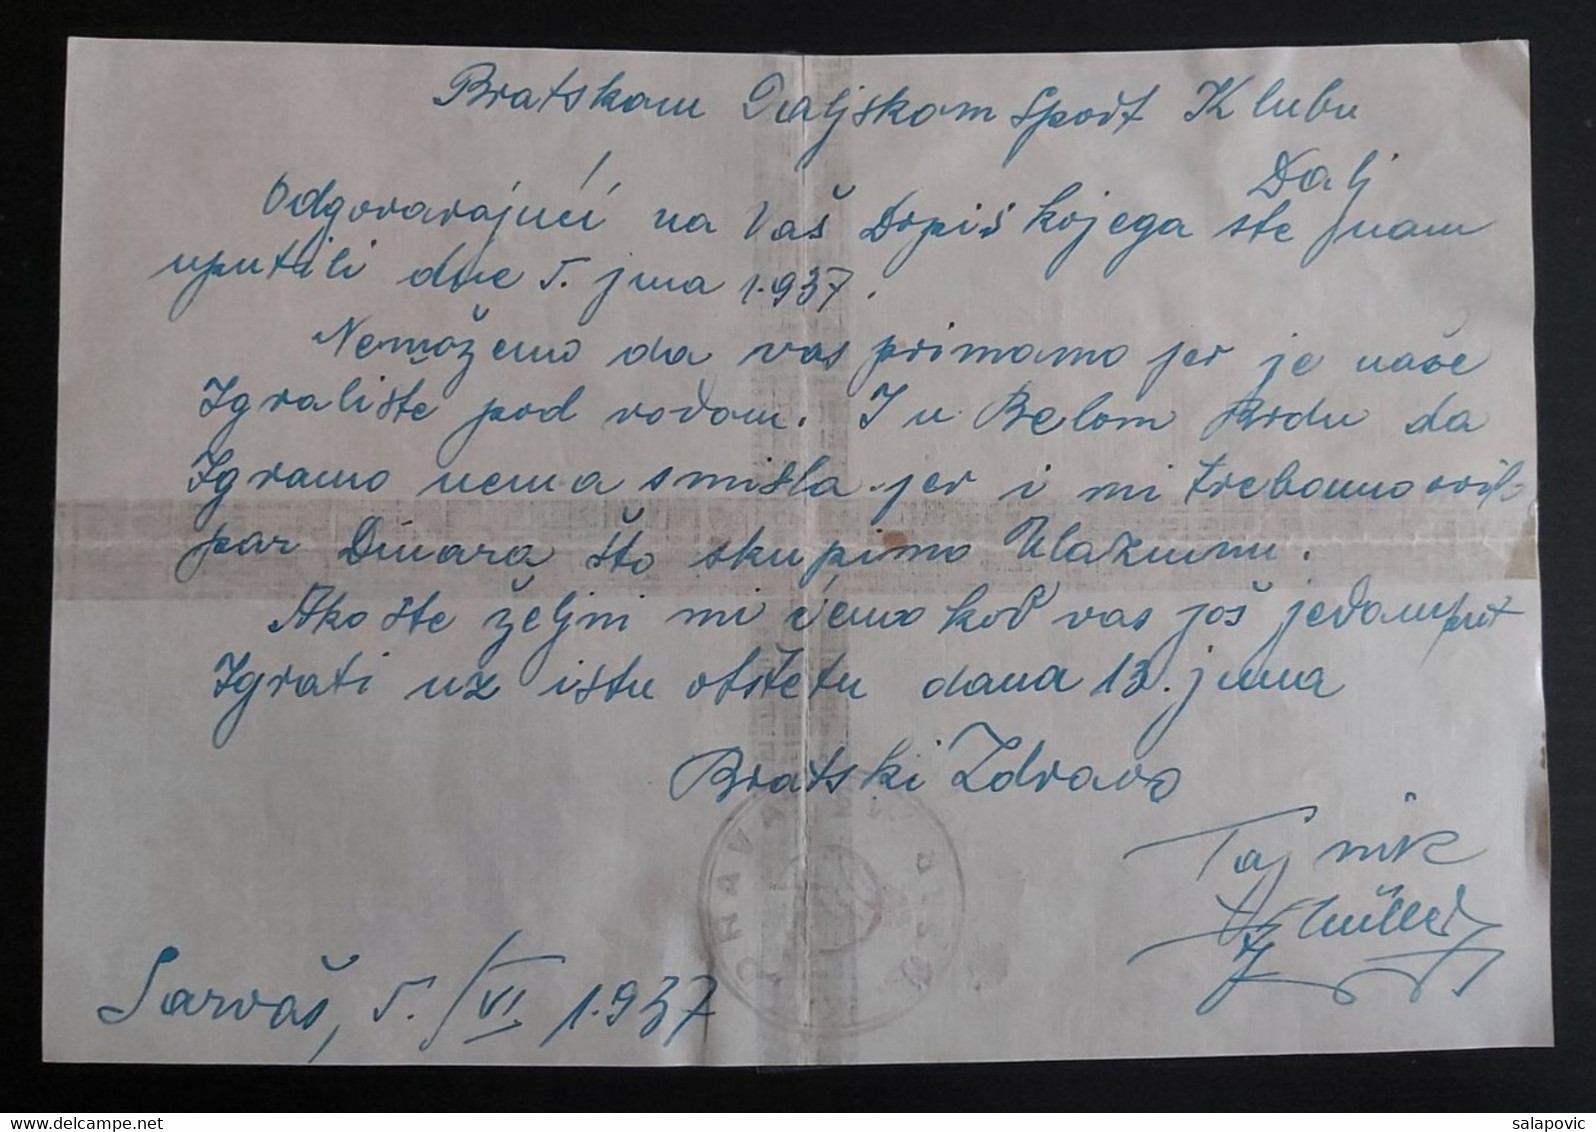 Bratskom Daljskom Sport Klubu
Dalj
Odgovarajući na Vaš Dopis kojega ste nam
uputili dne 5. juna 1.937.
Nemožemo da vas primamo jer je naše
Igralište pod vodom. I u Belom Brdu da
Igramo nema smisla jer i mi trebamo ovih
par Dinara što skupimo Ulazninu.
Ako šte željni mi ćemo kod vas još jedamput
Igrati uz istu otštetu dana 13. juna
Bratski Zdravo
Tajnik
Müller
Sarvaš, 5./VI 1.937
salapovic